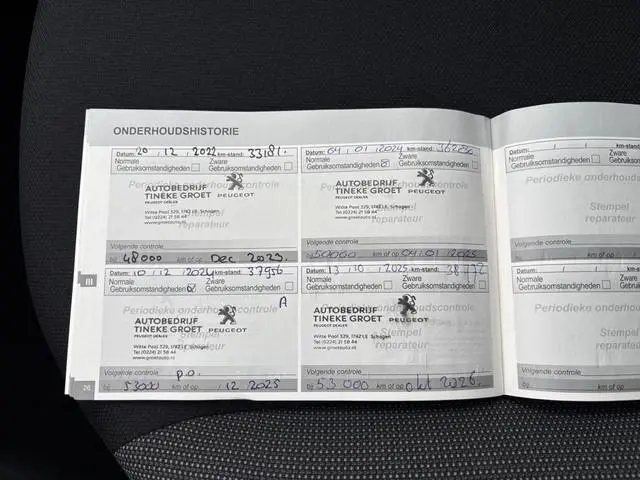 ONDERHOUDSHISTORIE
Datum: 20 , 12 , 2022 km-stand: 33181.
Normale Gebruiksomstandigheden
Zware Gebruiksomstandigheden
Periodieke onderhoudscontrole
AUTOBEDRIJF
TINEKE GROET
PEUGEOT DEALER
PEUGEOT
Witte Paal 329, 1742 LE Schagen
Tel (0224) 21 58 44
www.groetauto.nl
Stempel
reparateur
Volgende controle
bij 48000 km of op Dec 2023.
Datum: 04 , 01 , 2024 km-stand:
Normale Gebruiksomstandigheden
Zware Gebruiksomstandigheden
Periodieke onderhoudscontrole
AUTOBEDRIJF
TINEKE GROET
PEUGEOT DEALER
PEUGEOT
Witte Paal 329, 1742 LE Schagen
Tel (0224) 21 58 44
www.groetauto.nl
Stempel
reparateur
Volgende controle
bij 50000 km of op 04/01/2025
Datum: / / km-stand:
Normale Gebruiksomstandigheden
Periodieke onderhouds
Stempel
reparateur
Volgende controle
bij km of op
III
Datum: 10 , 12 , 2024 km-stand: 37956
Normale Gebruiksomstandigheden
Zware Gebruiksomstandigheden
A
Periodieke onderhoudscontrole
AUTOBEDRIJF
TINEKE GROET
PEUGEOT DEALER
PEUGEOT
Witte Paal 329, 1742 LE Schagen
Tel (0224) 21 58 44
www.groetauto.nl
Stempel
reparateur
Volgende controle p.o.
bij 53000 km of op 12 2025
Datum: 13 , 10 , 2025 km-stand: 38772
Normale Gebruiksomstandigheden
Zware Gebruiksomstandigheden
Periodieke onderhoudscontrole
AUTOBEDRIJF
TINEKE GROET
PEUGEOT DEALER
PEUGEOT
Witte Paal 329, 1742 LE Schagen
Tel (0224) 21 58 44
www.groetauto.nl
Stempel
reparateur
Volgende controle
bij 53000 km of op okt 2026.
Datum: / / km-stand:
Normale Gebruiksomstandigheden
Periodieke onderhouds
Stempel
reparateur
Volgende controle
bij km of op
26